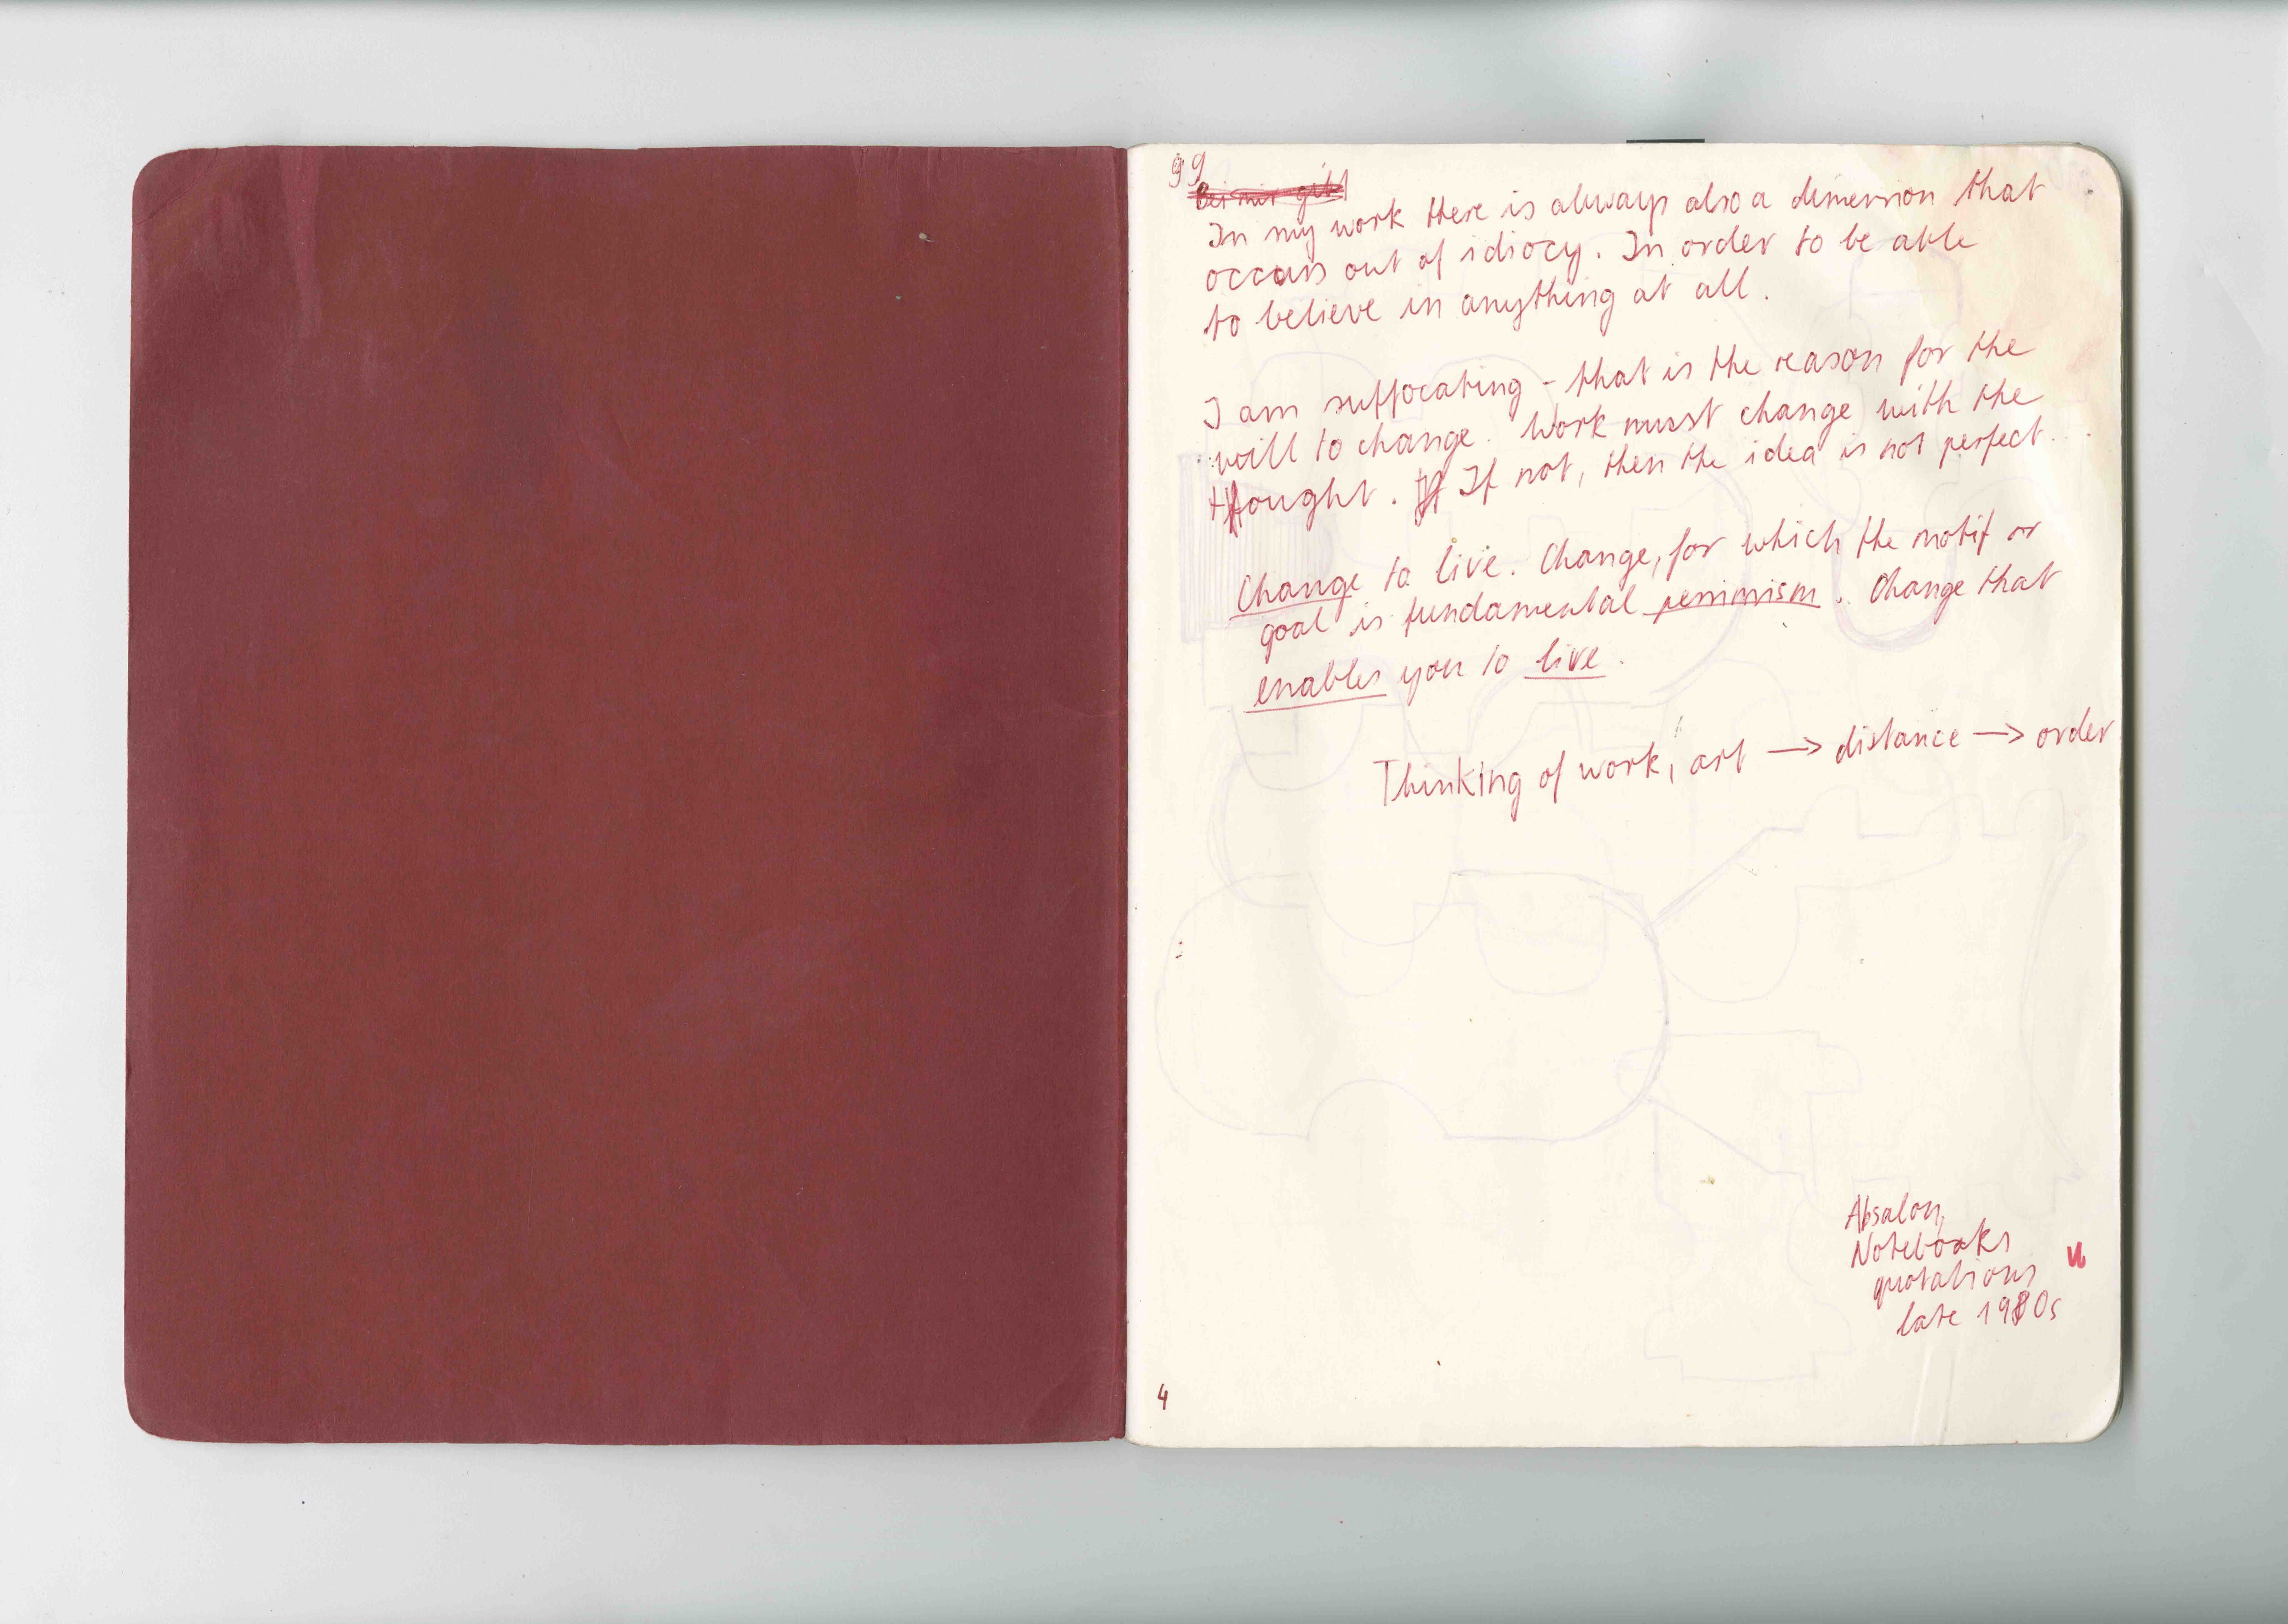 99
Bei mir gibt
In my work there is always also a dimension that
occurs out of idiocy. In order to be able
to believe in anything at all.
I am suffocating – that is the reason for the
will to change. Work must change with the
thought. If not, then the idea is not perfect.
Change to live. Change, for which the motif or
goal is fundamental pessimism. Change that
enables you to live.
Thinking of work, art → distance → order
Absalon,
Notebooks
quotations
late 1980s
4